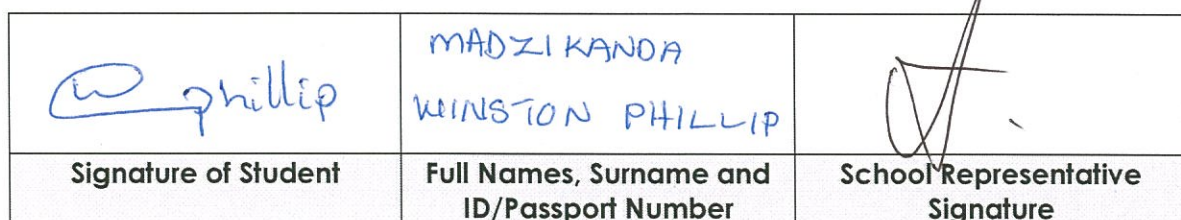 phillip
MADZIKANDA
WINSTON PHILLIP
Signature of Student
Full Names, Surname and
ID/Passport Number
School Representative
Signature